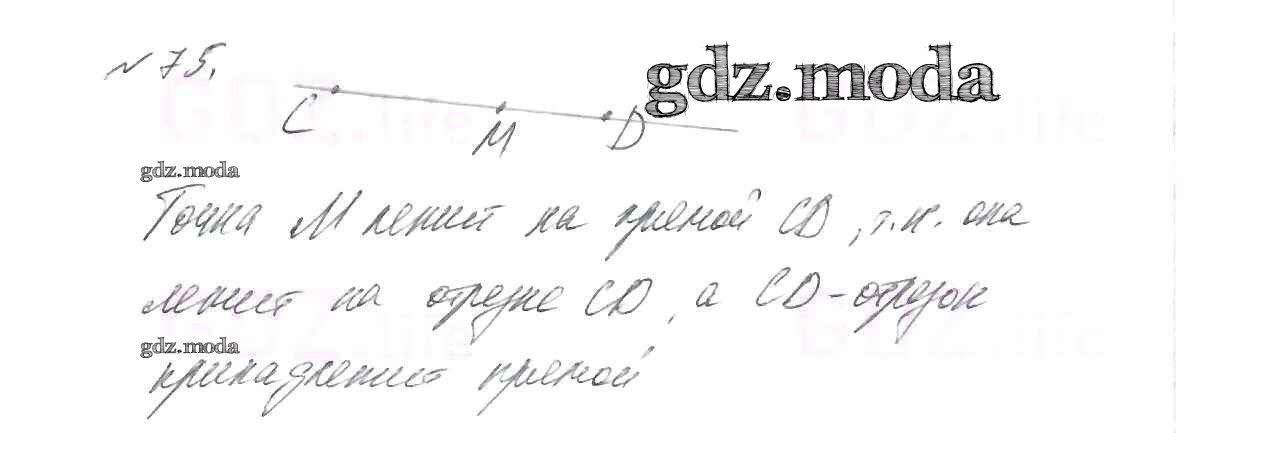 № 75.
gdz.moda
C M D
gdz.moda
Точка М лежит на прямой CD, т.к. она
лежит на отрезке CD, а CD-отрезок
gdz.moda
принадлежит прямой